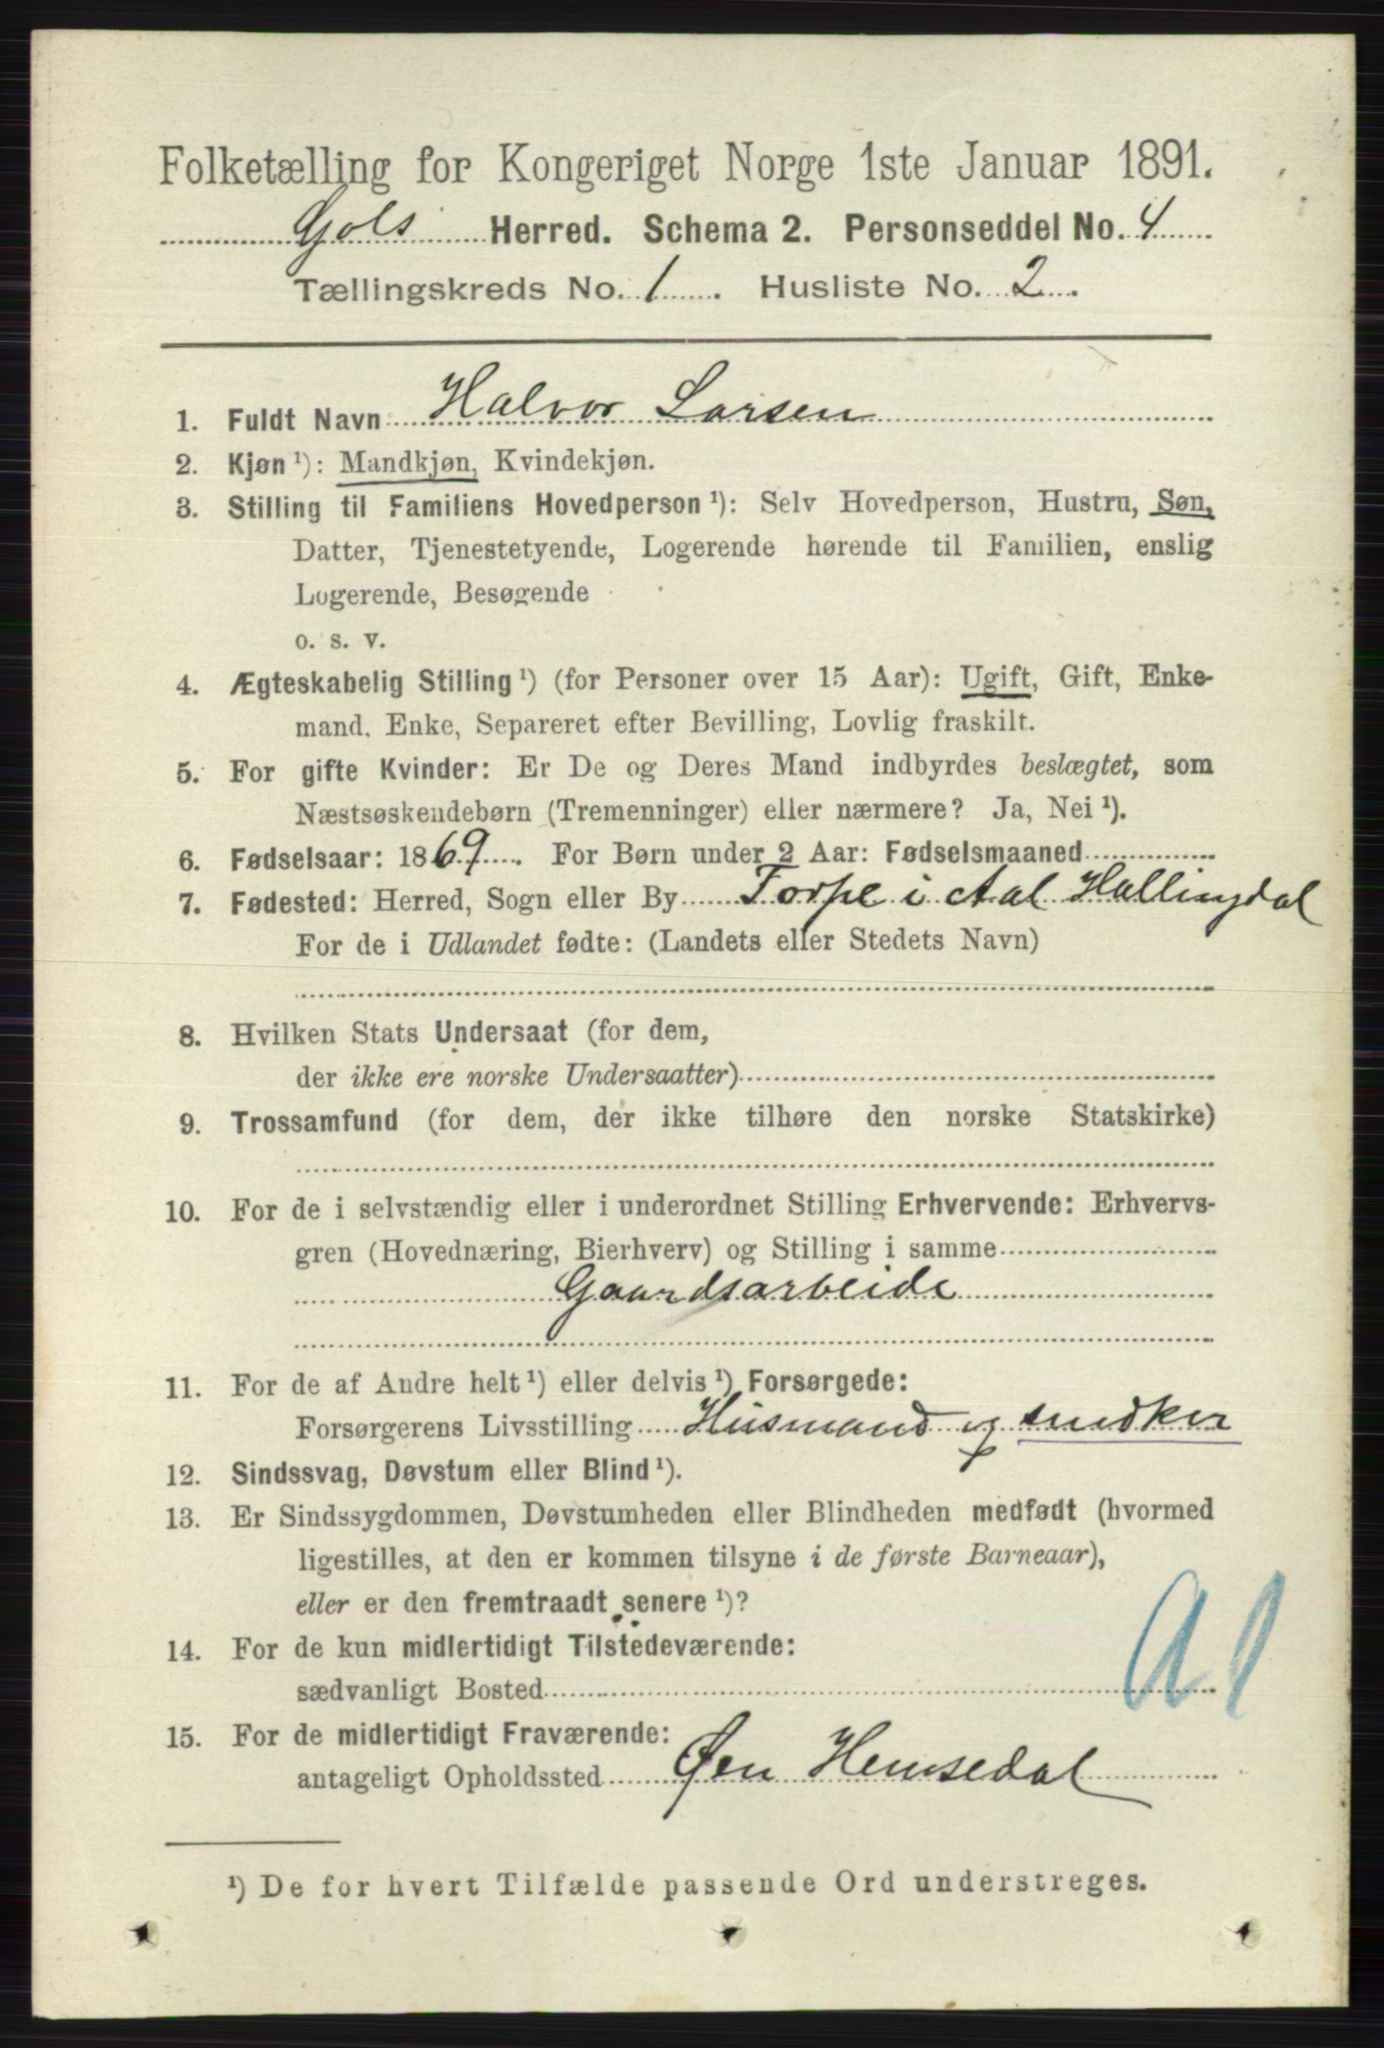 Folketælling for Kongeriget Norge 1ste Januar 1891.
Gols Herred. Schema 2. Personseddel No. 4
Tællingskreds No. 1. Husliste No. 2.
1. Fuldt Navn Halvor Larsen
2. Kjøn ¹): Mandkjøn, Kvindekjøn.
3. Stilling til Familiens Hovedperson ¹): Selv Hovedperson, Hustru, Søn,
Datter, Tjenestetyende, Logerende hørende til Familien, enslig
Logerende, Besøgende
o. s. v.
4. Ægteskabelig Stilling ¹) (for Personer over 15 Aar): Ugift, Gift, Enke-
mand, Enke, Separeret efter Bevilling, Lovlig fraskilt.
5. For gifte Kvinder: Er De og Deres Mand indbyrdes beslægtet, som
Næstsøskendebørn (Tremenninger) eller nærmere? Ja, Nei ¹).
6. Fødselsaar: 1869. For Børn under 2 Aar: Fødselsmaaned
7. Fødested: Herred, Sogn eller By Torpe i Aal Hallingdal
For de i Udlandet fødte: (Landets eller Stedets Navn)
8. Hvilken Stats Undersaat (for dem,
der ikke ere norske Undersaatter)
9. Trossamfund (for dem, der ikke tilhøre den norske Statskirke)
10. For de i selvstændig eller i underordnet Stilling Erhvervende: Erhvervs-
gren (Hovednæring, Bierhverv) og Stilling i samme
Gaardsarbeide
11. For de af Andre helt ¹) eller delvis ¹) Forsørgede:
Forsørgerens Livsstilling Husmand og snedker
12. Sindssvag, Døvstum eller Blind ¹).
13. Er Sindssygdommen, Døvstumheden eller Blindheden medfødt (hvormed
ligestilles, at den er kommen tilsyne i de første Barneaar),
eller er den fremtraadt senere ¹)?
14. For de kun midlertidigt Tilstedeværende:
sædvanligt Bosted
Al
15. For de midlertidigt Fraværende:
antageligt Opholdssted Øen Hemsedal
¹) De for hvert Tilfælde passende Ord understreges.